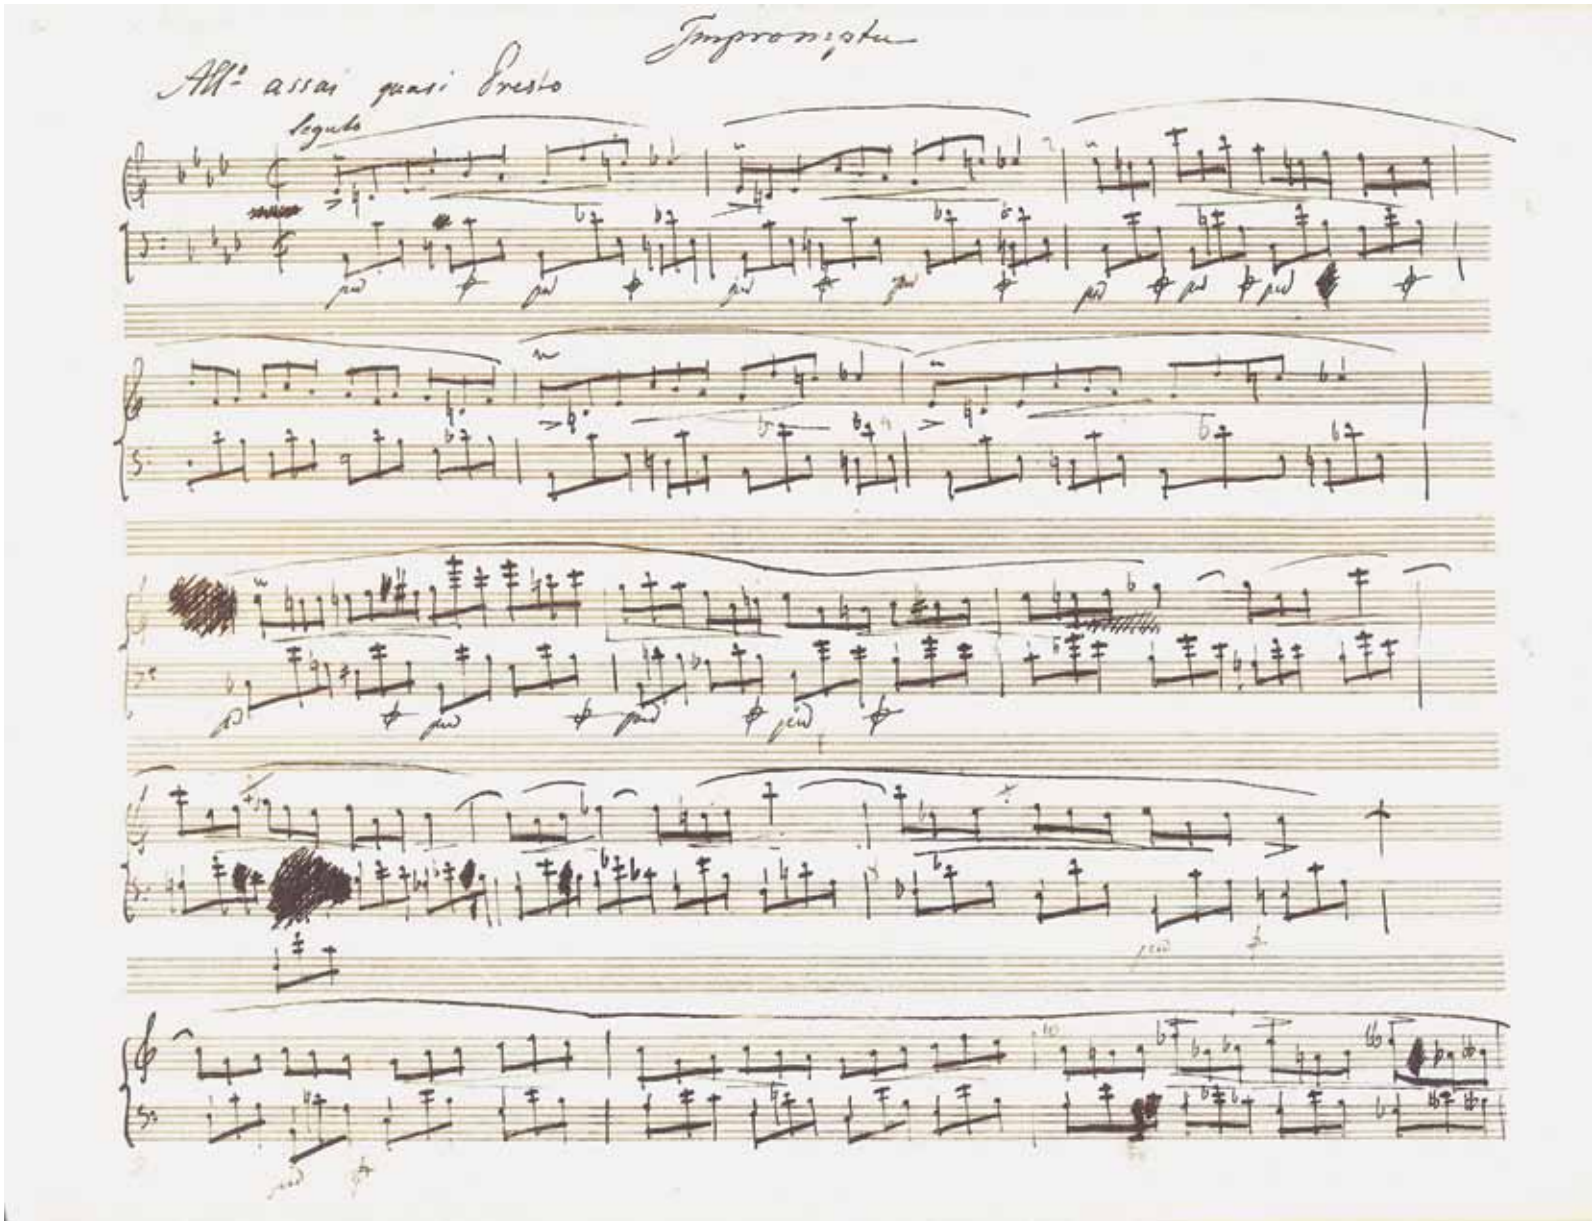 Impromptu
All.º assai quasi Presto
legato
ped ped ped ped ped ped ped
ped ped ped ped
ped
ped